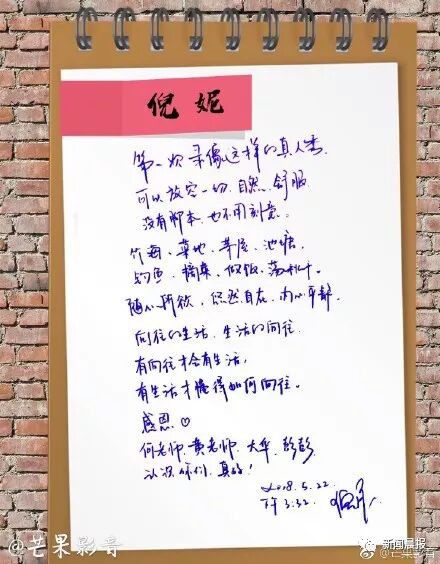 倪妮
第一次录像这样的真人秀
可以放空一切、自然、舒服
没有脚本、也不用刻意。
竹海、菜地、茅屋、池塘
钓鱼、摘菜、做饭、荡秋千。
随心所欲、悠然自在、内心平静。
向往的生活、生活的向往
有向往才会有生活，
有生活才懂得如何向往。
感恩♡
何老师、黄老师、大华、彭彭
认识你们、真好！
2018.5.22
下午3:32
@芒果影音
新闻晨报
@芒果影音